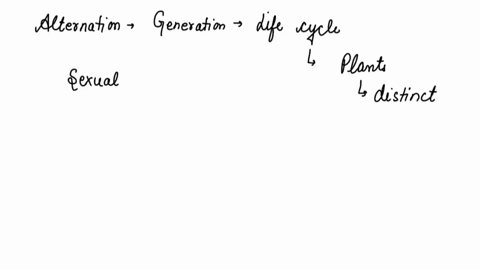 Alternation → Generation → Life cycle
↳ Plants
Sexual
↳ distinct